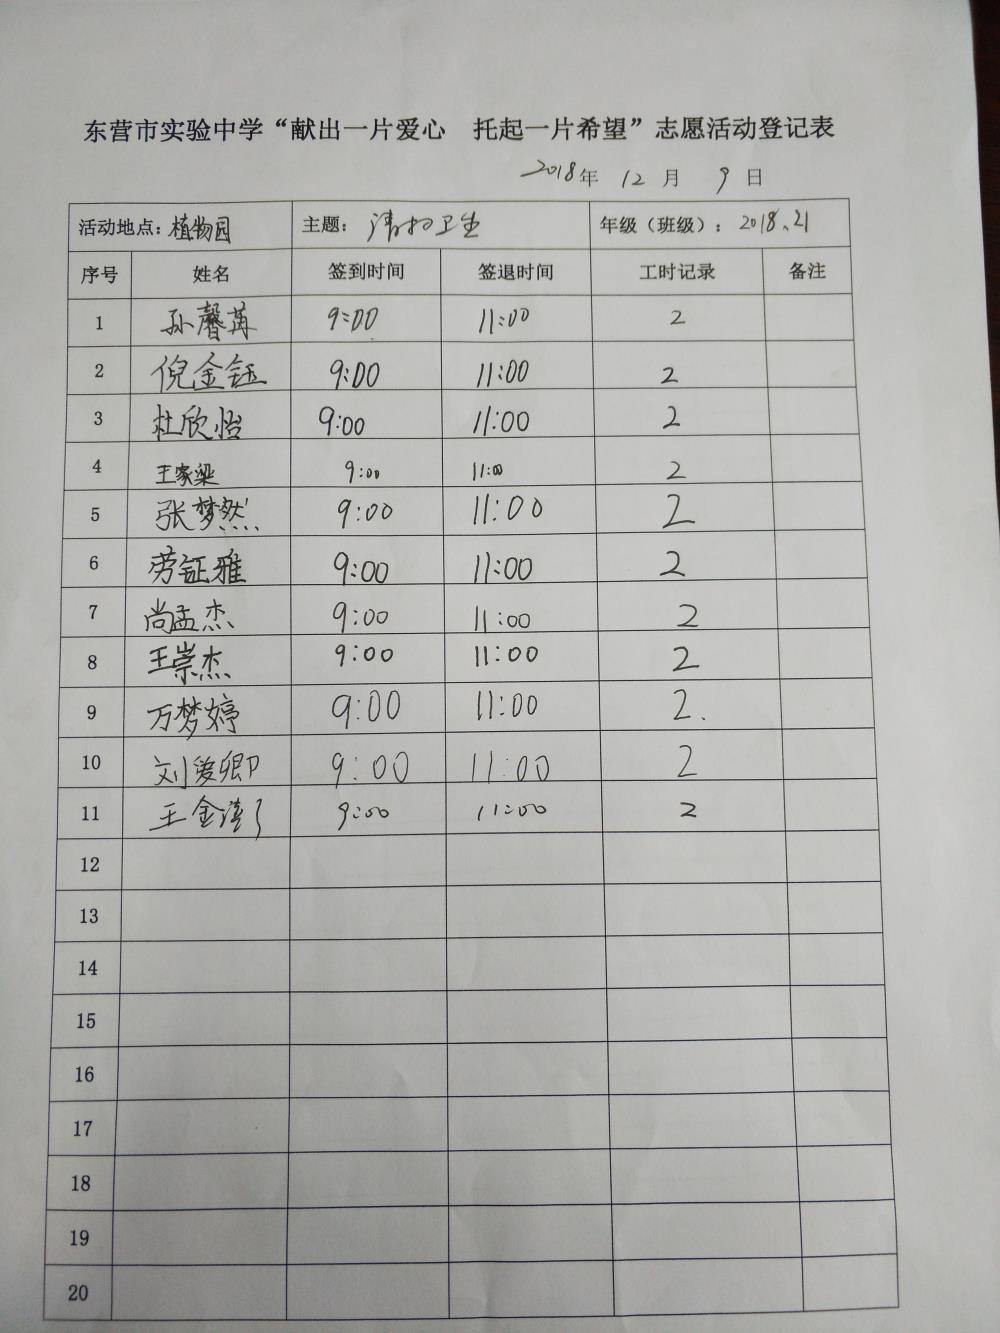 东营市实验中学“献出一片爱心 托起一片希望”志愿活动登记表
2018年 12月 9日
活动地点：植物园 主题：清扫卫生 年级（班级）：2018、21
序号 姓名 签到时间 签退时间 工时记录 备注
1 孙馨苒 9:00 11:00 2
2 倪金钰 9:00 11:00 2
3 杜欣怡 9:00 11:00 2
4 王家梁 9:00 11:00 2
5 张梦然 9:00 11:00 2
6 劳钲雅 9:00 11:00 2
7 尚孟杰 9:00 11:00 2
8 王崇杰 9:00 11:00 2
9 万梦婷 9:00 11:00 2.
10 刘爱卿 9:00 11:00 2
11 王金 9:00 11:00 2
12
13
14
15
16
17
18
19
20